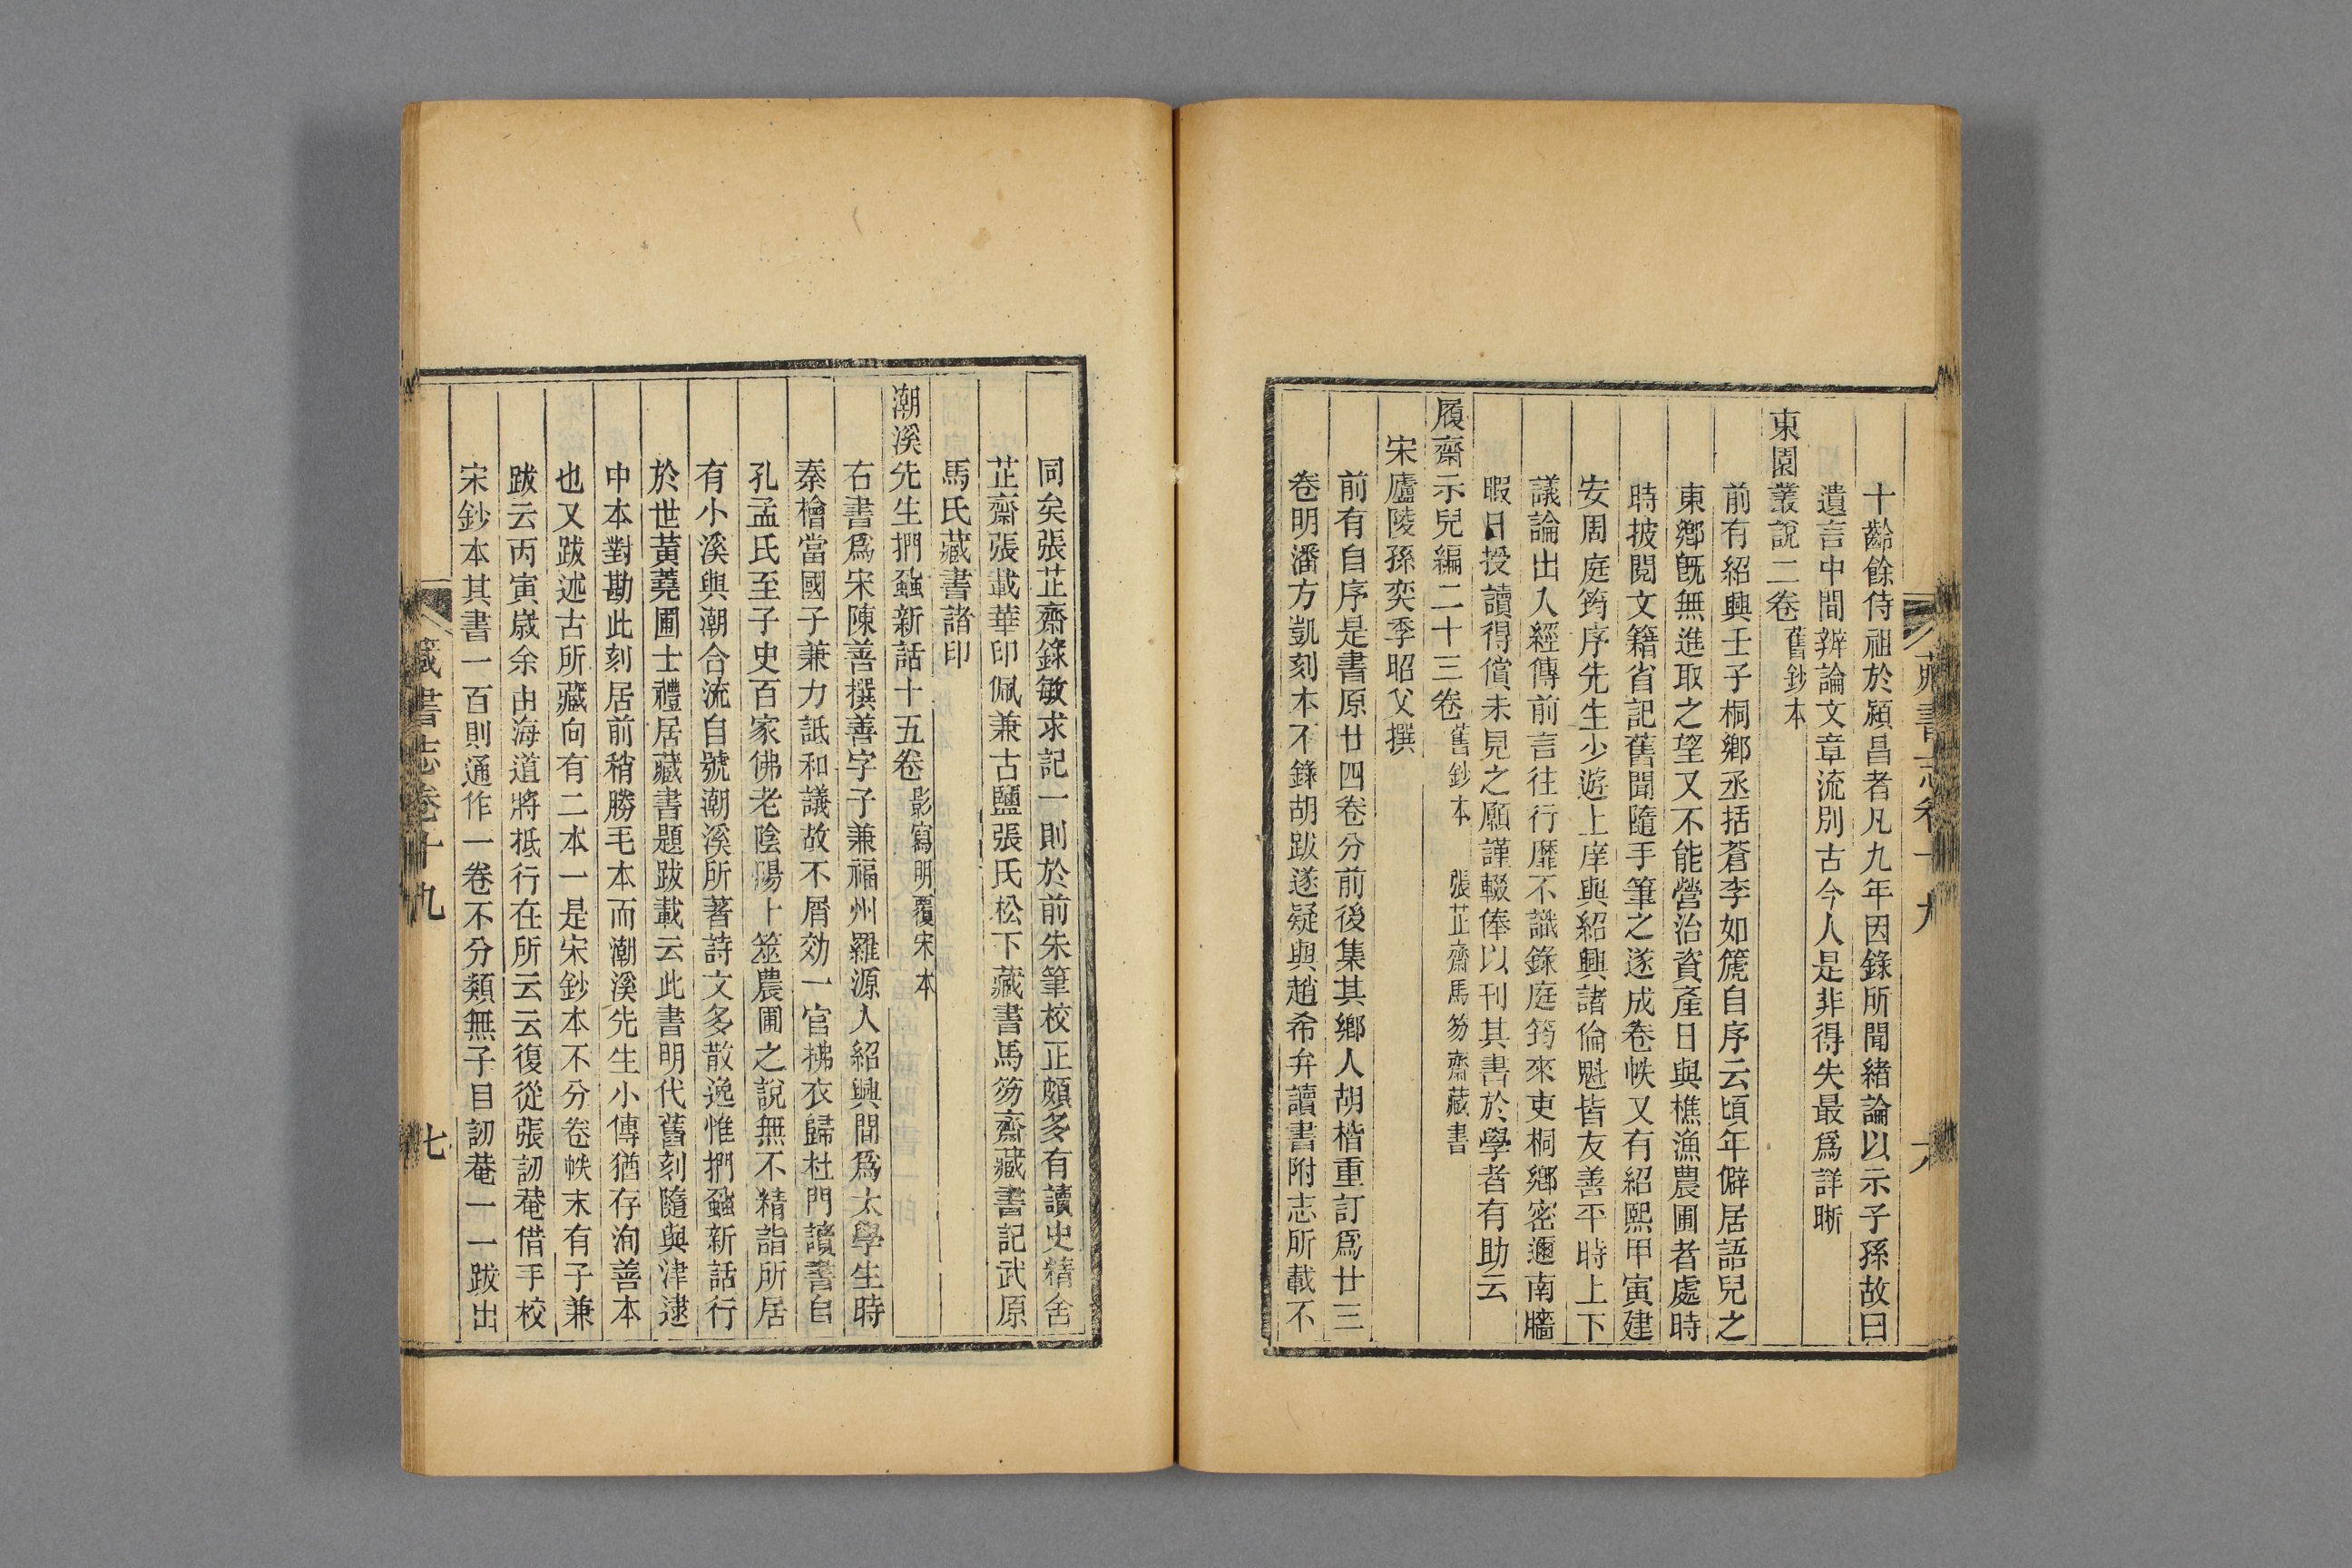 十齡餘侍祖於潁昌者凡九年因錄所聞緒論以示子孫故曰
遺言中間辨論文章流別古今人是非得失最爲詳晰
東園叢說二卷 舊鈔本
前有紹興壬子桐鄉丞括蒼李如箎自序云頃年僻居語兒之
東鄉旣無進取之望又不能營治資產日與樵漁農圃者處時
時披閱文籍省記舊聞隨手筆之遂成卷帙又有紹熙甲寅建
安周庭筠序先生少遊上庠與紹興諸倫魁皆友善平時上下
議論出入經傳前言往行靡不識錄庭筠來吏桐鄉密邇南牆
暇日授讀得償未見之願謹輟俸以刊其書於學者有助云
履齋示兒編二十三卷 舊鈔本 張芷齋馬笏齋藏書
宋廬陵孫奕季昭父撰
前有自序是書原廿四卷分前後集其鄉人胡楷重訂爲廿三
卷明潘方凱刻本不錄胡跋遂疑與趙希弁讀書附志所載不
藏書志卷十九
同矣張芷齋錄敏求記一則於前朱筆校正頗多有讀史精舍
芷齋張載華印佩兼古鹽張氏松下藏書馬笏齋藏書記武原
馬氏藏書諸印
潮溪先生捫蝨新話十五卷 影寫明覆宋本
右書爲宋陳善撰善字子兼福州羅源人紹興間爲太學生時
秦檜當國子兼力詆和議故不屑効一官拂衣歸杜門讀書自
孔孟氏至子史百家佛老陰陽卜筮農圃之說無不精詣所居
有小溪與潮合流自號潮溪所著詩文多散逸惟捫蝨新話行
於世黃蕘圃士禮居藏書題跋載云此書明代舊刻隨與津逮
中本對勘此刻居前稍勝毛本而潮溪先生小傳猶存洵善本
也又跋述古所藏向有二本一是宋鈔本不分卷帙末有子兼
跋云丙寅歲余由海道將抵行在所云云復從張訒菴借手校
宋鈔本其書一百則通作一卷不分類無子目訒菴一一跋出
藏書志卷十九
七